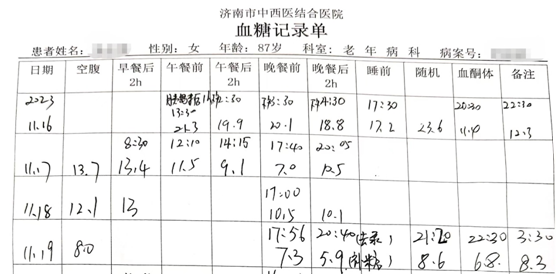 济南市中西医结合医院
血糖记录单
患者姓名: 性别: 女 年龄: 87岁 科室: 老年病科 病案号:
日期 空腹 早餐后2h 午餐前 午餐后2h 晚餐前 晚餐后2h 睡前 随机 血酮体 备注
2023 :30 :30 :30 17:30 20:30 22:30
13:30
11.16 21.3 19.9 20.1 18.8 17.2 23.6 12.3
8:30 12:10 14:15 17:40 20:05
11.17 13.7 13.4 11.5 9.1 7.0
17:00
11.18 12.1 13 10.5 10.1
17:56 20:40 21:20 22:30 3:30
11.19 8.0 7.3 5.9 8.6 6.8 8.3